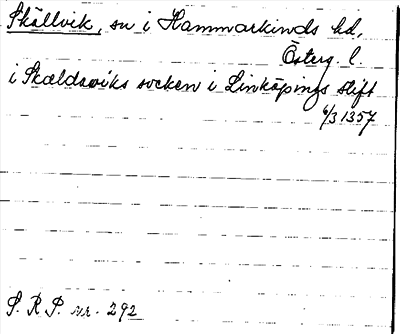 Skällvik, sn i Hammarkinds hd,
Österg. l.
i Skældawiks socken i Linköpings stift
6/3 1357
S. R. P. nr. 292